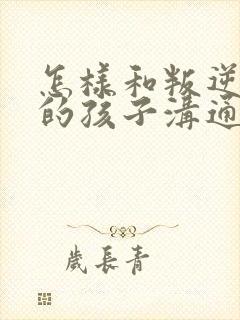 怎樣和叛逆
的孩子溝通
歲長青